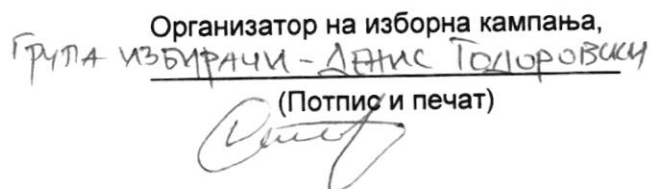 Организатор на изборна кампања,
ГРУПА ИЗБИРАЧИ - ДЕНИС ТОДОРОВСКИ
(Потпис и печат)